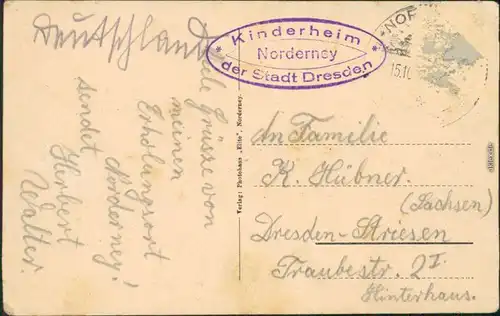 Deutschland
Kinderheim
Norderney
der Stadt Dresden
NOR
15.10
Viele Grüsze von
meinen
Erholungsort
Norderney!
sendet
Herbert
Walter.
Verlag: Photohaus „Elite", Norderney.
An Familie
K. Hübner
(Sachsen)
Dresden-Striesen
Traubestr. 2I
Hinterhaus.